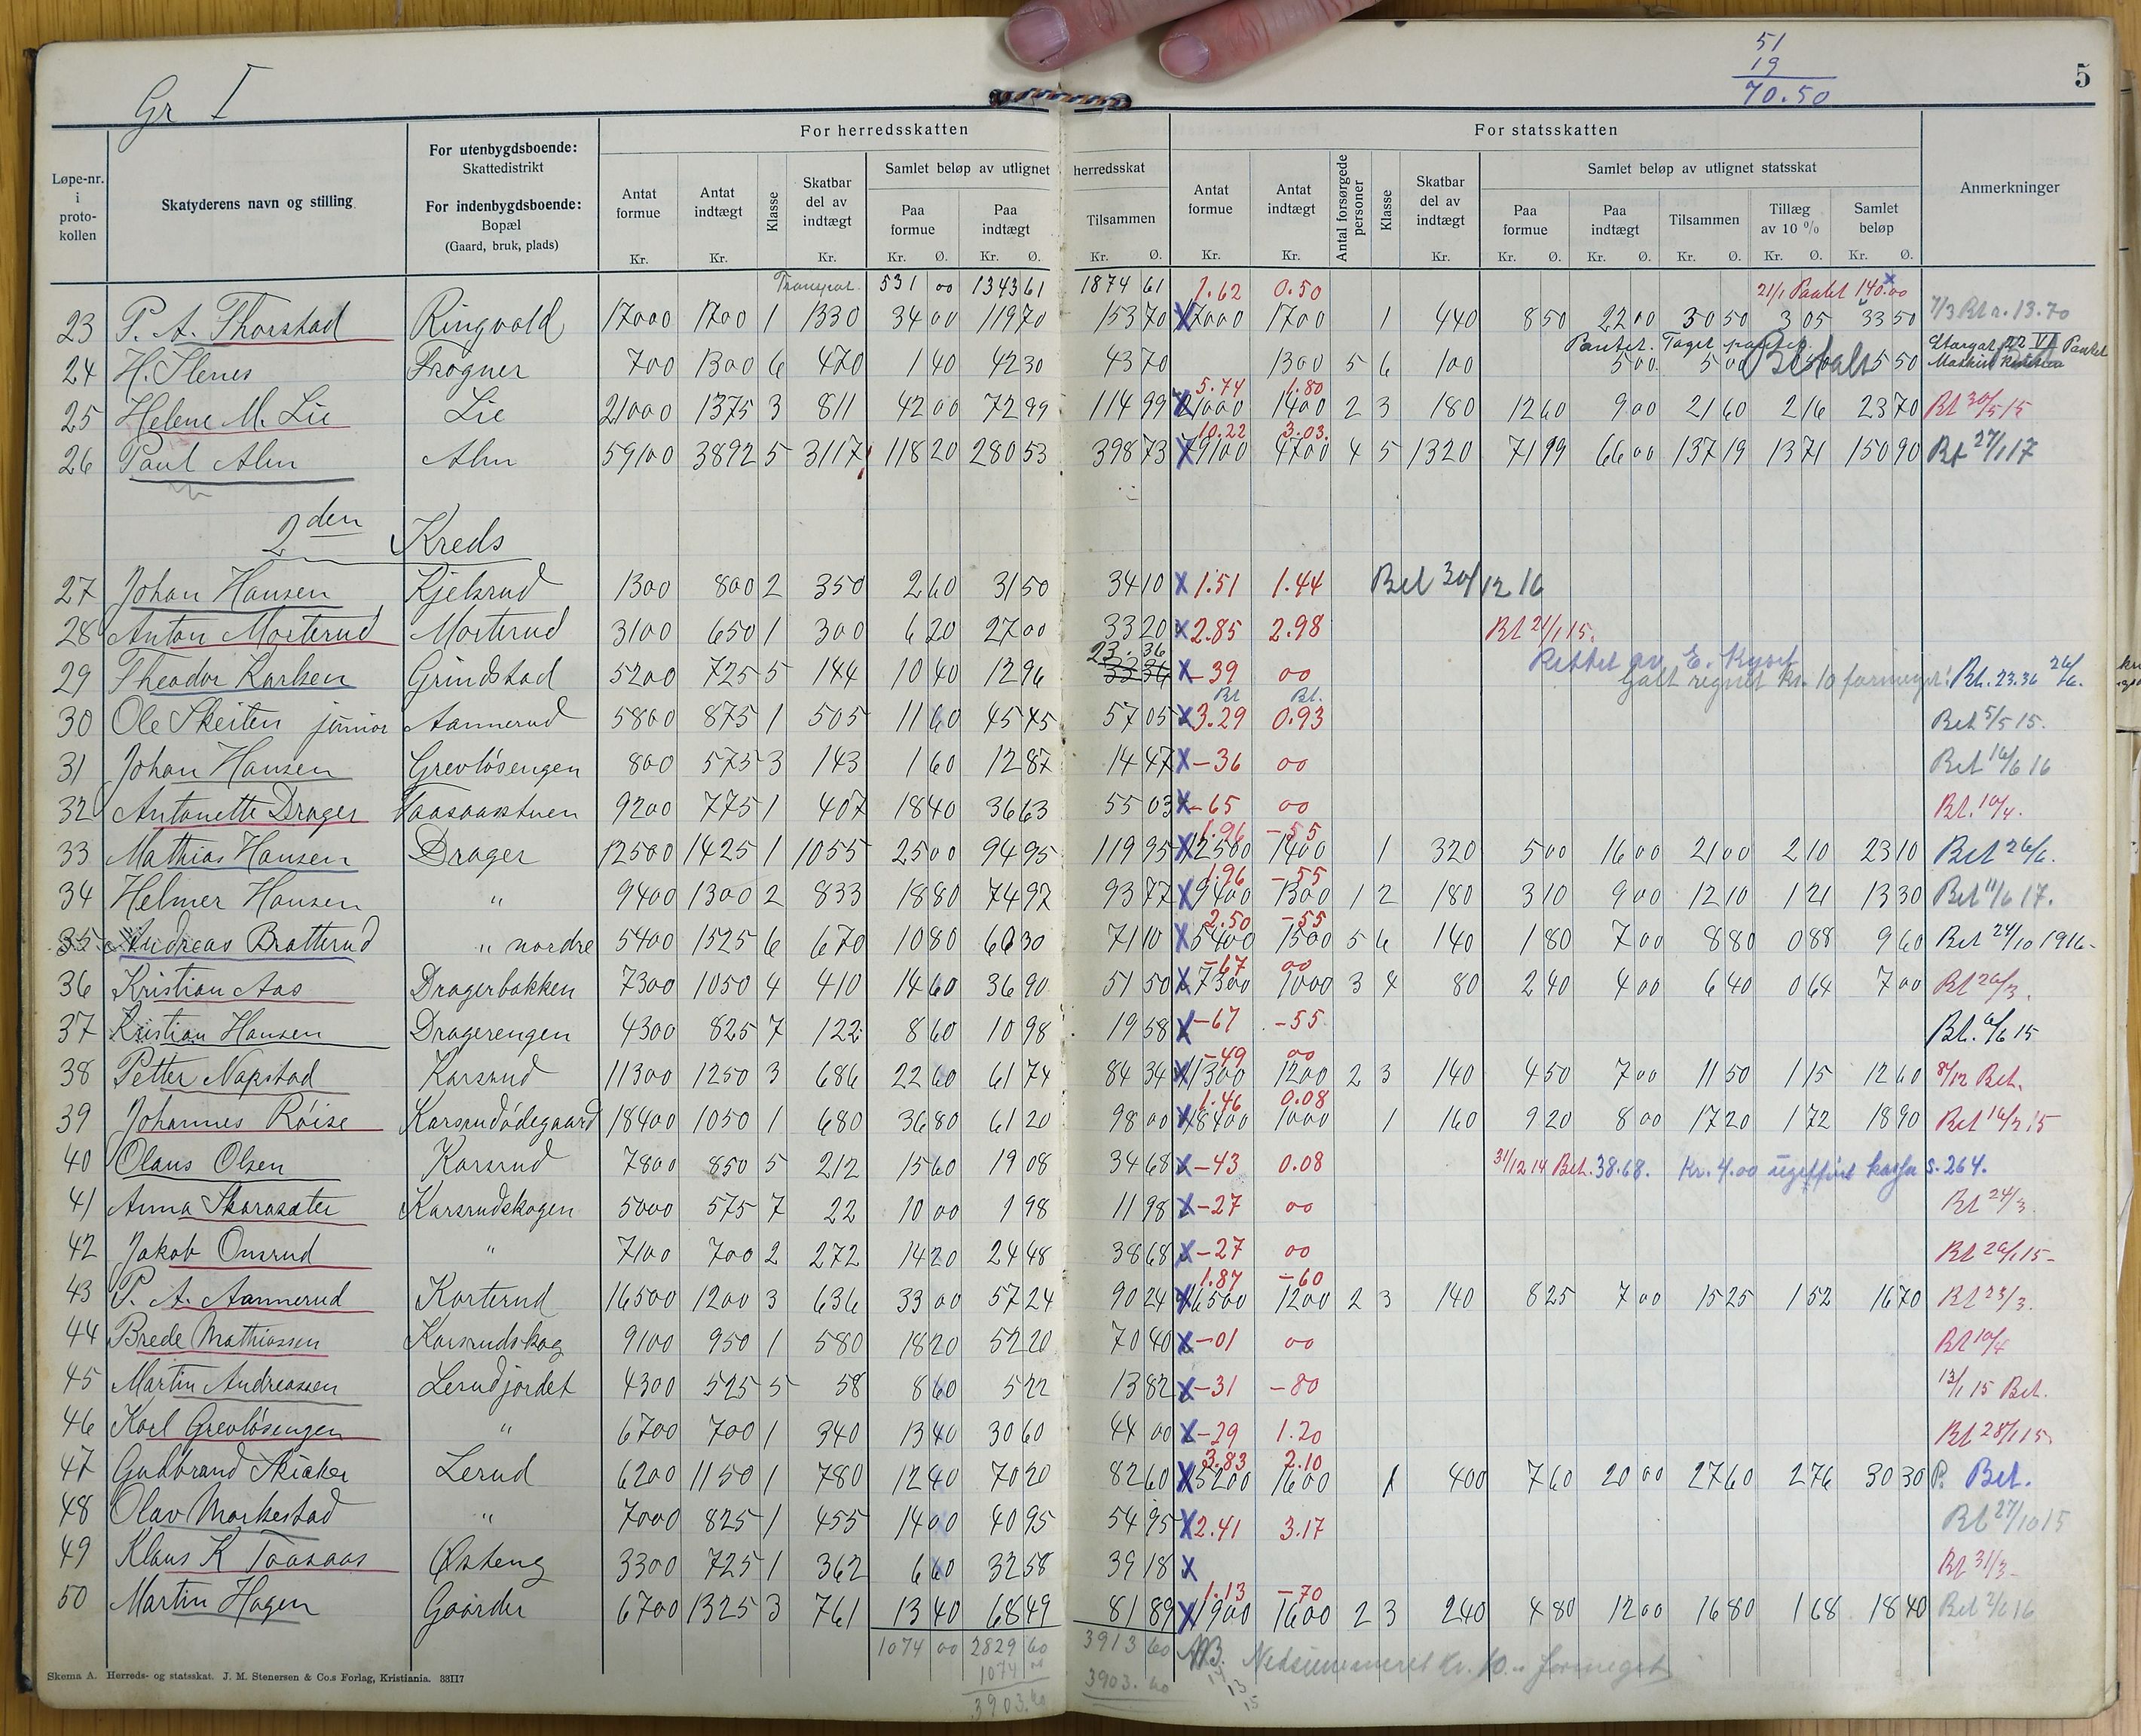 Gr I
51
19
70.50
5
Løpe-nr. i proto-kollen
Skatyderens navn og stilling
For utenbygdsboende: Skattedistrikt
For indenbygdsboende: Bopæl (Gaard, bruk, plads)
For herredsskatten
Antat formue Kr.
Antat indtægt Kr.
Klasse
Skatbar del av indtægt Kr.
Samlet beløp av utlignet herredsskat
Paa formue Kr. Ø.
Paa indtægt Kr. Ø.
Tilsammen Kr. Ø.
For statsskatten
Antat formue Kr.
Antat indtægt Kr.
Antal forsørgede personer
Klasse
Skatbar del av indtægt Kr.
Samlet beløp av utlignet statsskat
Paa formue Kr. Ø.
Paa indtægt Kr. Ø.
Tilsammen Kr. Ø.
Tillæg av 10 % Kr. Ø.
Samlet beløp Kr. Ø.
Anmerkninger
Transport 531 00 1343 61 1874 61 1.62 0.50 21/1 Pantet 140.00
23 P. A. Thorstad Ringvold 17000 1700 1 1330 34 00 119 70 153 70 X 17000 1700 1 440 8 50 22 00 30 50 3 05 33 50 7/3 Bt a. 13.70
Pantet.
24 H. Stenes Frogner 700 1300 6 470 1 40 42 30 43 70 1300 5 6 100 5 00 5 00 Betalt 5 50
5.74 1.80
25 Helene M. Lie Lie 21000 1375 3 811 42 00 72 99 114 99 X 21000 1400 2 3 180 12 60 9 00 21 60 2 16 23 70 Bt 30/5 15
10.22 3.03
26 Paul Alm Alm 59100 3892 5 3117 118 20 280 53 398 73 X 79100 4700 4 5 1320 71 99 66 00 137 19 13 71 150 90 Bt 27/1 17
2den Kreds
27 Johan Hansen Kjelsrud 1300 800 2 350 2 60 31 50 34 10 X 1.51 1.44 Bet 30/12 16
28 Anton Morterud Morterud 3100 650 1 300 6 20 27 00 33 20 X 2.85 2.98 Bt 21/1 15.
23.36
Rettet av E. Kyset
29 Theodor Karlsen Grindstad 5200 725 5 144 10 40 12 96 33 36 X -39 00 Galt regnet kr. 10 formeget! Bt. 23.36 26/6.
Bt Bt.
30 Ole Skeiten junior Aannerud 5800 875 1 505 11 60 45 45 57 05 X 3.29 0.93 Bet 5/5 15.
31 Johan Hansen Grevlösengen 800 575 3 143 1 60 12 87 14 47 X -36 00 Bet 16/6 16
32 Antonette Drager Taasaasstuen 9200 775 1 407 18 40 36 63 55 03 X -65 00 Bt. 10/4.
1.96 -55
33 Mathias Hansen Drager 12500 1425 1 1055 25 00 94 95 119 95 X 12500 1400 1 320 5 00 16 00 21 00 2 10 23 10 Bet 26/6.
1.96 -55
34 Helmer Hansen " 9400 1300 2 833 18 80 74 97 93 77 X 9400 1300 1 2 180 3 10 9 00 12 10 1 21 13 30 Bet 11/6 17.
2.50 -55
35 Andreas Bratterud " nordre 5400 1525 6 670 10 80 60 30 71 10 X 5400 1500 5 6 140 1 80 7 00 8 80 0 88 9 60 Bet 24/10 1916-
-67 00
36 Kristian Aas Dragerbakken 7300 1050 4 410 14 60 36 90 51 50 X 7300 1000 3 4 80 2 40 4 00 6 40 0 64 7 00 Bt 26/3.
37 Kristian Hansen Dragerengen 4300 825 7 122 8 60 10 98 19 58 X -67 -55 Bt. 6/6 15
-49 00
38 Petter Napstad Karsrud 11300 1250 3 686 22 60 61 74 84 34 X 11300 1200 2 3 140 4 50 7 00 11 50 1 15 12 60 8/12 Bet.
1.46 0.08
39 Johannes Röise Karsrudödegaard 18400 1050 1 680 36 80 61 20 98 00 X 18400 1000 1 160 9 20 8 00 17 20 1 72 18 90 Bet 16/3 15
40 Olaus Olsen Karsrud 7800 850 5 212 15 60 19 08 34 68 X -43 0.08 31/12 14 Bet. 38.68. Kr. 4.00 kassa s. 264.
41 Anna Skarasæter Karsrudskogen 5000 575 7 22 10 00 1 98 11 98 X -27 00 Bt 24/3
42 Jakob Onsrud " 7100 700 2 272 14 20 24 48 38 68 X -27 00 Bt 26/1 15-
1.87 -60
43 P. A. Aannerud Korterud 16500 1200 3 636 33 00 57 24 90 24 X 16500 1200 2 3 140 8 25 7 00 15 25 1 52 16 70 Bt 23/3.
44 Brede Mathiassen Karsrudskog 9100 950 1 580 18 20 52 20 70 40 X -01 00 Bt 10/4
45 Martin Andreassen Lerudjordet 4300 525 5 58 8 60 5 22 13 82 X -31 -80 13/1 15 Bet.
46 Karl Grevlösengen " 6700 700 1 340 13 40 30 60 44 00 X -29 1.20 Bt 28/1 15
3.83 2.10
47 Gudbrand Skiaker Lerud 6200 1150 1 780 12 40 70 20 82 60 X 15200 1600 1 400 7 60 20 00 27 60 2 76 30 30 P. Bet.
48 Olav Markestad " 7000 825 1 455 14 00 40 95 54 95 X 2.41 3.17 Bt 27/10 15
49 Klaus K Taasaas Østeng 3300 725 1 362 6 60 32 58 39 18 X Bt 31/3-
1.13 -70
50 Martin Hagen Gaarder 6700 1325 3 761 13 40 68 49 81 89 X 11900 1600 2 3 240 4 80 12 00 16 80 1 68 18 40 Bet 2/6 16
1074 00 2829 60 3913 60 NB. Nedsummeret Kr. 10.- formeget
1074 00
3903.60 3903.60
14 13 15
Skema A. Herreds- og statsskat. J. M. Stenersen & Co.s Forlag, Kristiania. 33117